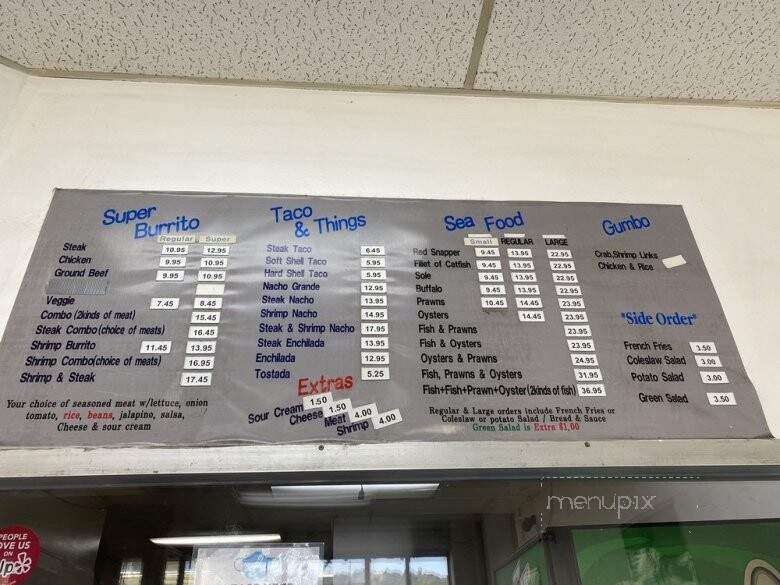 Super
Burrito
Regular Super
Steak 10.95 12.95
Chicken 9.95 10.95
Ground Beef 9.95 10.95
Veggie 7.45 8.45
Combo (2kinds of meat) 15.45
Steak Combo (choice of meats) 16.45
Shrimp Burrito 11.45 13.95
Shrimp Combo (choice of meats) 16.95
Shrimp & Steak 17.45
Your choice of seasoned meat w/lettuce, onion
tomato, rice, beans, jalapino, salsa,
Cheese & sour cream
Taco
& Things
Steak Taco 6.45
Soft Shell Taco 5.95
Hard Shell Taco 5.95
Nacho Grande 12.95
Steak Nacho 13.95
Shrimp Nacho 14.95
Steak & Shrimp Nacho 17.95
Steak Enchilada 13.95
Enchilada 12.95
Tostada 5.25
Extras
Sour Cream 1.50
Cheese 1.50
Meat 4.00
Shrimp 4.00
Sea Food
Small REGULAR LARGE
Red Snapper 9.45 13.95 22.95
Fillet of Catfish 9.45 13.95 22.95
Sole 9.45 13.95 22.95
Buffalo 9.45 13.95 23.95
Prawns 10.45 14.45 23.95
Oysters 14.45 23.95
Fish & Prawns 23.95
Fish & Oysters 23.95
Oysters & Prawns 24.95
Fish, Prawns & Oysters 31.95
Fish+Fish+Prawn+Oyster (2kinds of fish) 36.95
Regular & Large orders include French Fries or
Coleslaw or potato Salad / Bread & Sauce
Green Salad is Extra $1,00
Gumbo
Crab, Shrimp Links
Chicken & Rice
"Side Order"
French Fries 3.50
Coleslaw Salad 3.00
Potato Salad 3.00
Green Salad 3.50
menupix
PEOPLE
OVE US
ON
lp